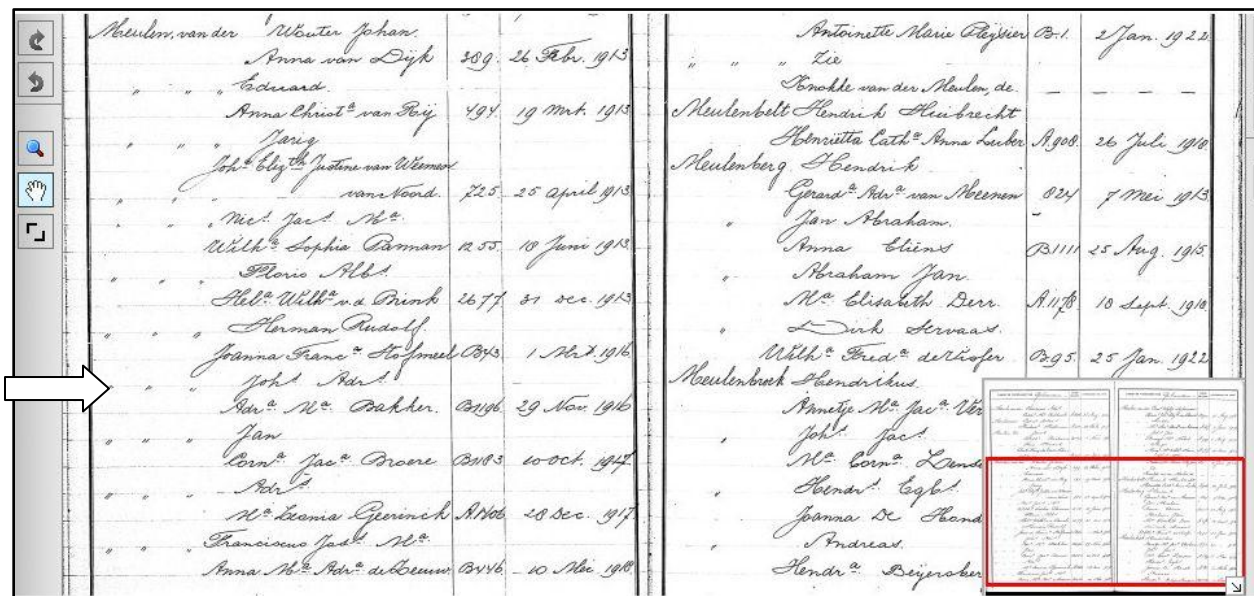 Meulen, van der Wouter Johan.
Anna van Dijk 389. 26 Febr. 1913
" " " Eduard.
Anna Christa van Roij 494. 19 Mrt. 1913
" " " Jarig
Joha Elizth Justine van Weemen
van Noord. 725. 25 April 1913
" " " Nics Jacs Ma.
Wilha Sophia Panman 1255. 18 Juni 1913.
" " " Floris Albs
Hela Wilha v.d. Brink 2677. 31 Dec. 1913
" " " Herman Rudolf.
Joanna Franca Hofmeel B43. 1 Mrt. 1916
" " " Johs Adrs
Adra Ma Bakker. B1196. 29 Nov. 1916
" " " Jan
Corna Jaca Broere B1183 10 Oct. 1917.
" " " Adrs
Ma Leonia Geerinck A.1406. 28 Dec. 1917
" " " Franciscus Jacs Ma.
Anna Ma Adra de Leeuw B446. 10 Mei 1918.
Antoinette Marie Pleysier B.1. 2 Jan. 1922
" " " Zie
Knokke van der Meulen, de. — — —
Meulenbelt Hendrik Huibrecht
Henriëtta Catha Anna Luber A.908. 26 Juli 1918.
Meulenberg Hendrik
Gerarda Adra van Meenen 824 7 Mei 1913
" Jan Abraham.
Anna Etiëns B1111 25 Aug. 1915.
" Abraham Jan
Ma Elisabeth Derr. A.1178. 18 Sept. 1918.
" Dirk Servaas.
Wilha Freda B.95. 25 Jan. 1922
Meulenbroek Hendrikus.
Annetje Ma Jaca Ver
" Johs Jacs
Ma Corna
" Hendrs Egbs
Joanna De Hond
" Andreas.
Hendra Beijersber